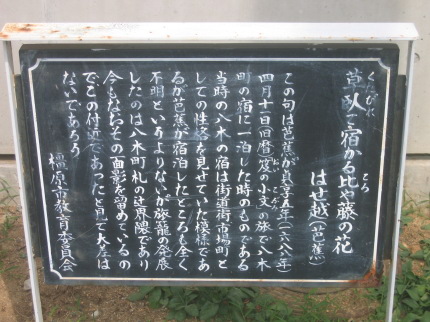 草臥て宿かる比や藤の花
くたびれ
ころ
はせ越（芭蕉）
この句は芭蕉が貞享五年（一六八八年）
四月十一日旧暦笈の小文の旅で八木
おい こぶみ
町の宿に一泊した時のものである
当時の八木の宿は街道街市場町と
しての性格を見せていた模様であ
るが芭蕉が宿泊したところも全く
不明というよりないが旅籠の発展
したのは八木町札の辻界隈であり
今もなおその面影を留めているの
でこの付近であったと見て大差は
ないであろう
橿原市教育委員会